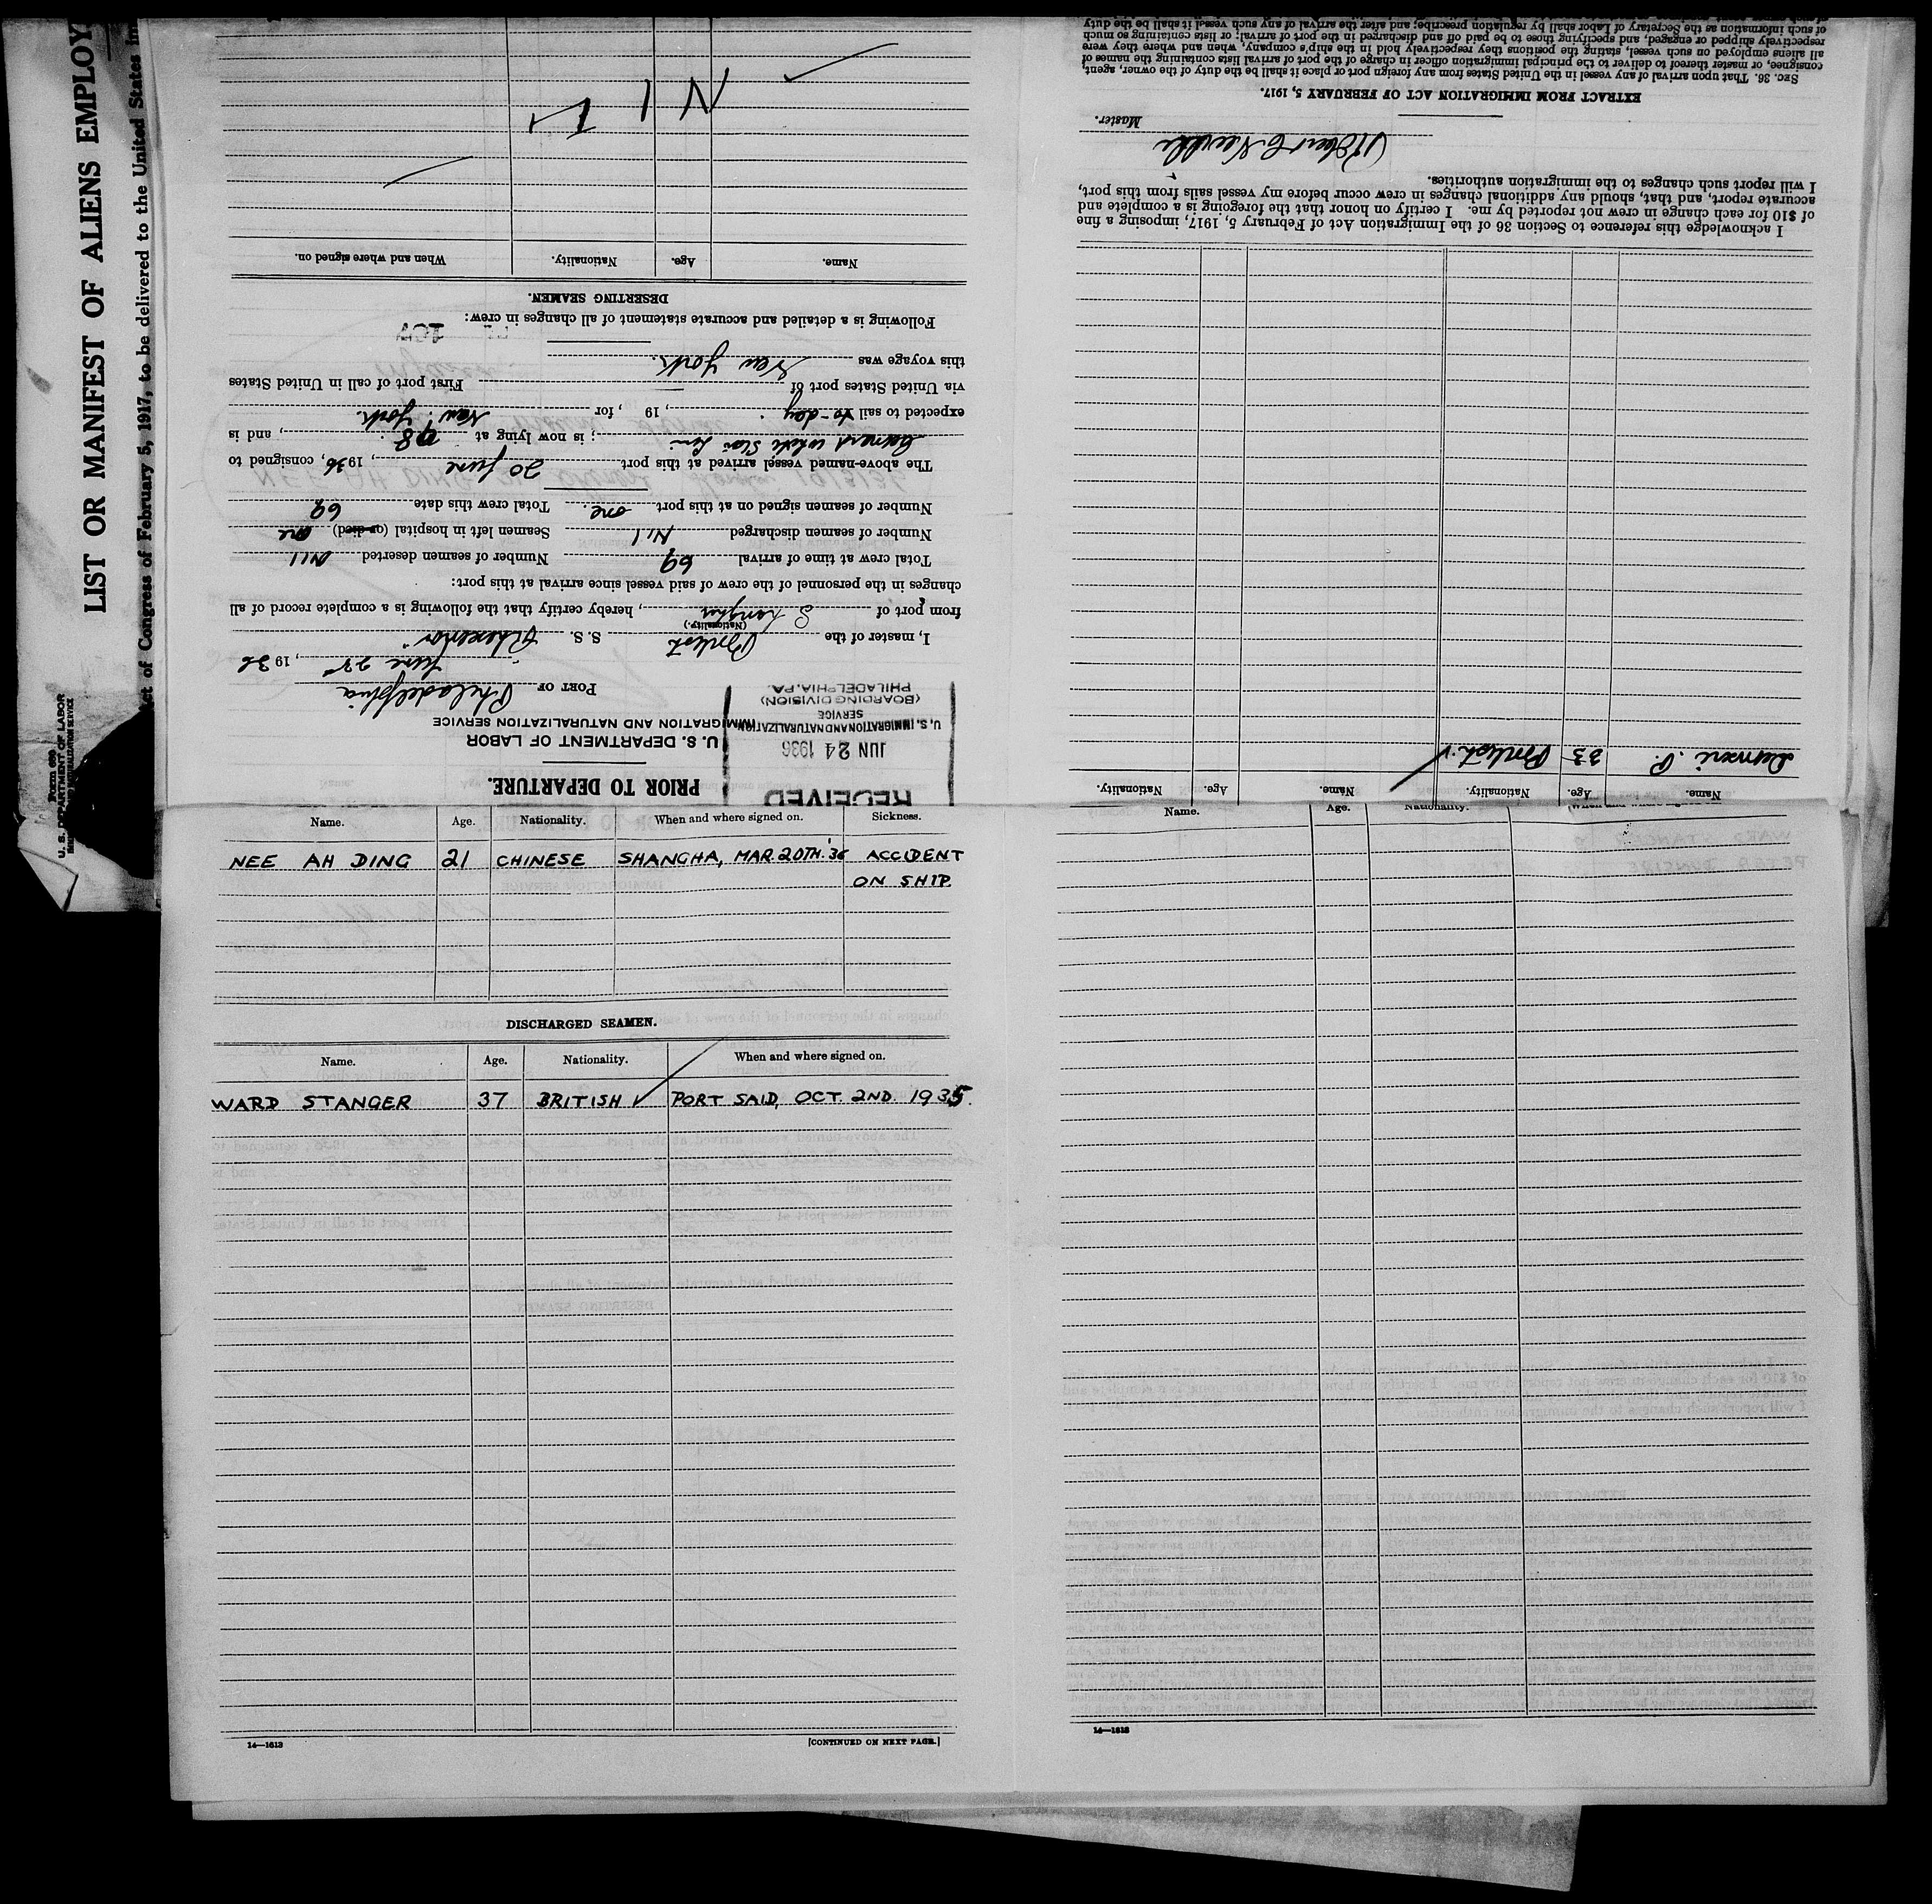 LIST OR MANIFEST OF ALIENS EMPLOY
ct of Congress of February 5, 1917, to be delivered to the United States im
Form 689
U. S. DEPARTMENT OF LABOR
RECEIVED
JUN 24 1936
U. S. IMMIGRATION AND NATURALIZATION
SERVICE
(BOARDING DIVISION)
PHILADELPHIA, PA.
PRIOR TO DEPARTURE.
U. S. DEPARTMENT OF LABOR
IMMIGRATION AND NATURALIZATION SERVICE
PORT OF Philadelphia
June 25, 1936
I, master of the British S. S.
(Nationality.)
from port of Shanghai, hereby certify that the following is a complete record of all
changes in the personnel of the crew of said vessel since arrival at this port:
Total crew at time of arrival 69 Number of seamen deserted Nil
Number of seamen discharged Nil Seamen left in hospital (or died) one
Number of seamen signed on at this port one. Total crew this date 69
The above-named vessel arrived at this port 20 June, 1936, consigned to
Cunard White Star Line; is now lying at 98, and is
expected to sail to-day, 19 , for New York.
via United States port of — First port of call in United States
this voyage was New York.
167
Following is a detailed and accurate statement of all changes in crew:
DESERTING SEAMEN.
Name. Age. Nationality. When and where signed on.
N I L
Name. Age. Nationality. Name. Age. Nationality.
P. 33 British
I acknowledge this reference to Section 36 of the Immigration Act of February 5, 1917, imposing a fine
of $10 for each change in crew not reported by me. I certify on honor that the foregoing is a complete and
accurate report, and that, should any additional changes in crew occur before my vessel sails from this port,
I will report such changes to the immigration authorities.
Master.
EXTRACT FROM IMMIGRATION ACT OF FEBRUARY 5, 1917.
SEC. 36. That upon arrival of any vessel in the United States from any foreign port or place it shall be the duty of the owner, agent,
consignee, or master thereof to deliver to the principal immigration officer in charge of the port of arrival lists containing the names of
all aliens employed on such vessel, stating the positions they respectively hold in the ship's company, when and where they were
respectively shipped or engaged, and specifying those to be paid off and discharged in the port of arrival; or lists containing so much
of such information as the Secretary of Labor shall by regulation prescribe; and after the arrival of any such vessel it shall be the duty
Name. Age. Nationality. When and where signed on. Sickness.
NEE AH DING 21 CHINESE SHANGHA, MAR. 20TH. '36 ACCIDENT
ON SHIP.
DISCHARGED SEAMEN.
Name. Age. Nationality. When and where signed on.
WARD STANGER 37 BRITISH PORT SAID, OCT. 2ND. 1935.
14—1613
[CONTINUED ON NEXT PAGE.]
Name. Age. Nationality.
14—1613